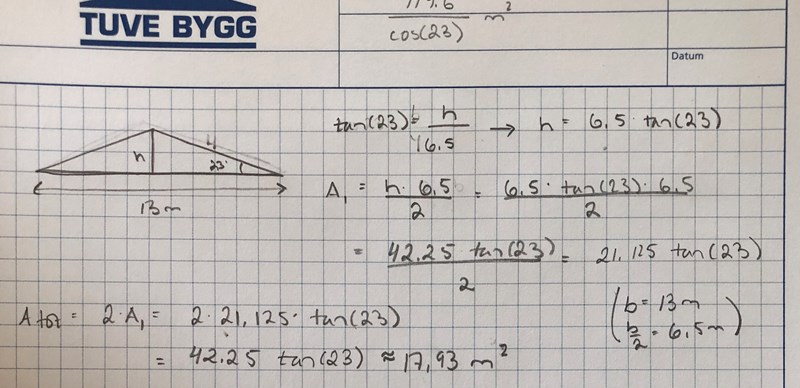 TUVE BYGG
cos(23) m²
Datum
tan(23) = h / 6.5 → h = 6,5 · tan(23)
h
23°
13 m
A₁ = h · 6,5 / 2 = 6,5 · tan(23) · 6,5 / 2
= 42.25 tan(23) / 2 = 21,125 tan(23)
(b = 13 m
b/2 = 6,5 m)
A tot = 2 · A₁ = 2 · 21,125 · tan(23)
= 42.25 tan(23) ≈ 17,93 m²